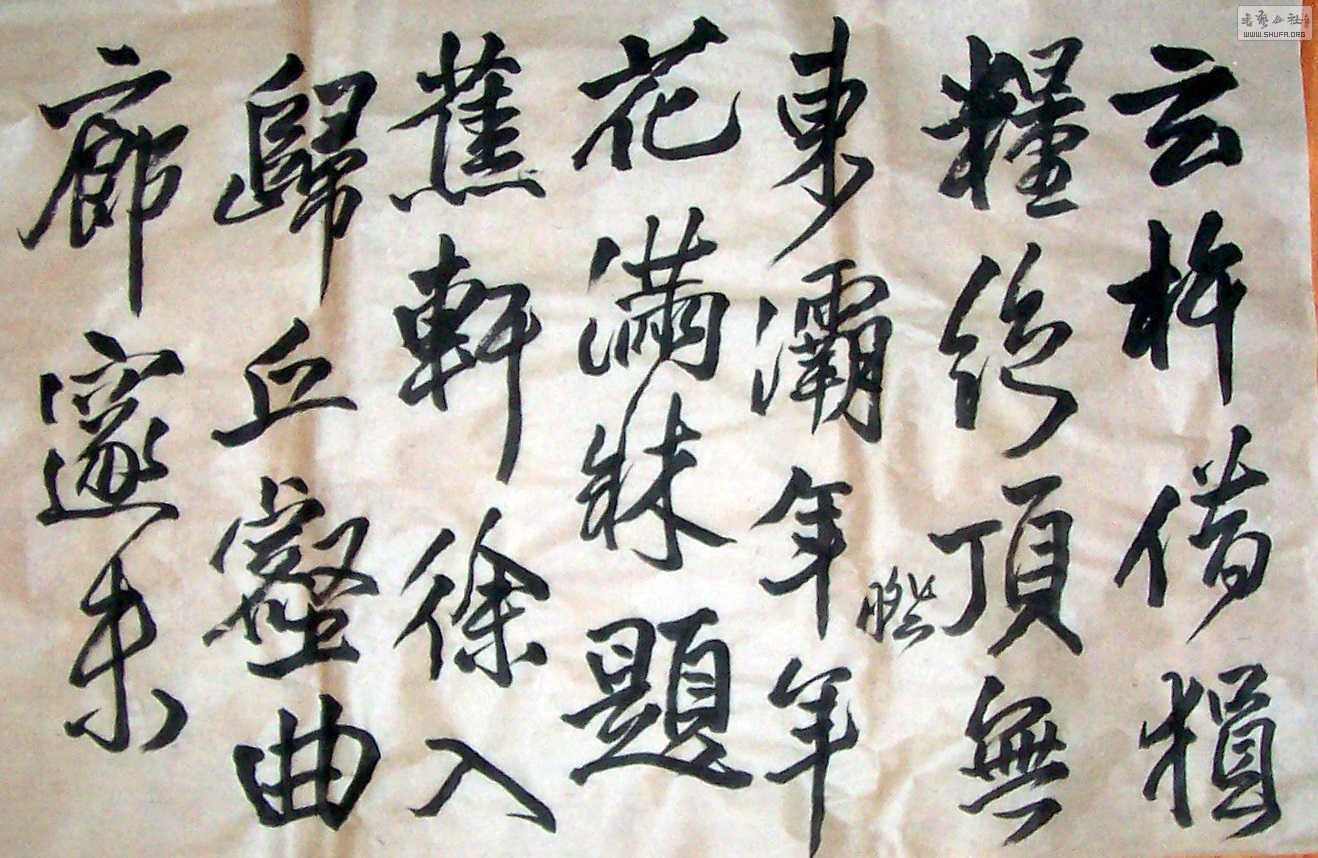 云杵借損
糧絕頂無
東灞年年暌
花滿題
蕉軒徐入
歸丘壑曲
廊邃未
書藝公社
WWW.SHUFA.ORG